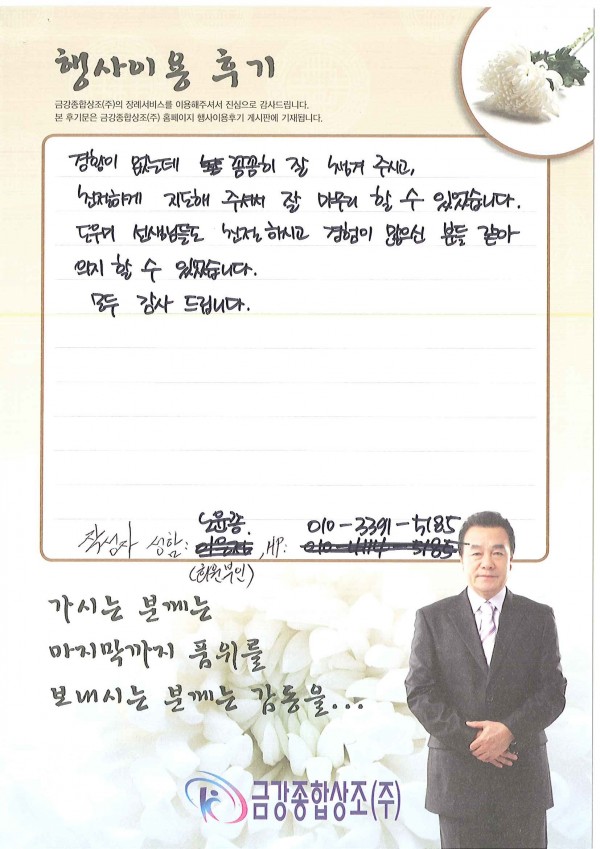 행사이용 후기
금강종합상조(주)의 장례서비스를 이용해주셔서 진심으로 감사드립니다.
본 후기문은 금강종합상조(주) 홈페이지 행사이용후기 게시판에 기재됩니다.
경황이 없는데 꼼꼼히 잘 챙겨 주시고,
친절하게 지도해 주셔서 잘 마무리 할 수 있었습니다.
도우미 선생님들도 친절하시고 경험이 많으신 분들 같아
의지 할 수 있었습니다.
모두 감사 드립니다.
작성자 성함: , HP: 010-3391-5185
(회원부인)
가시는 분께는
마지막까지 품위를
보내시는 분께는 감동을...
금강종합상조(주)